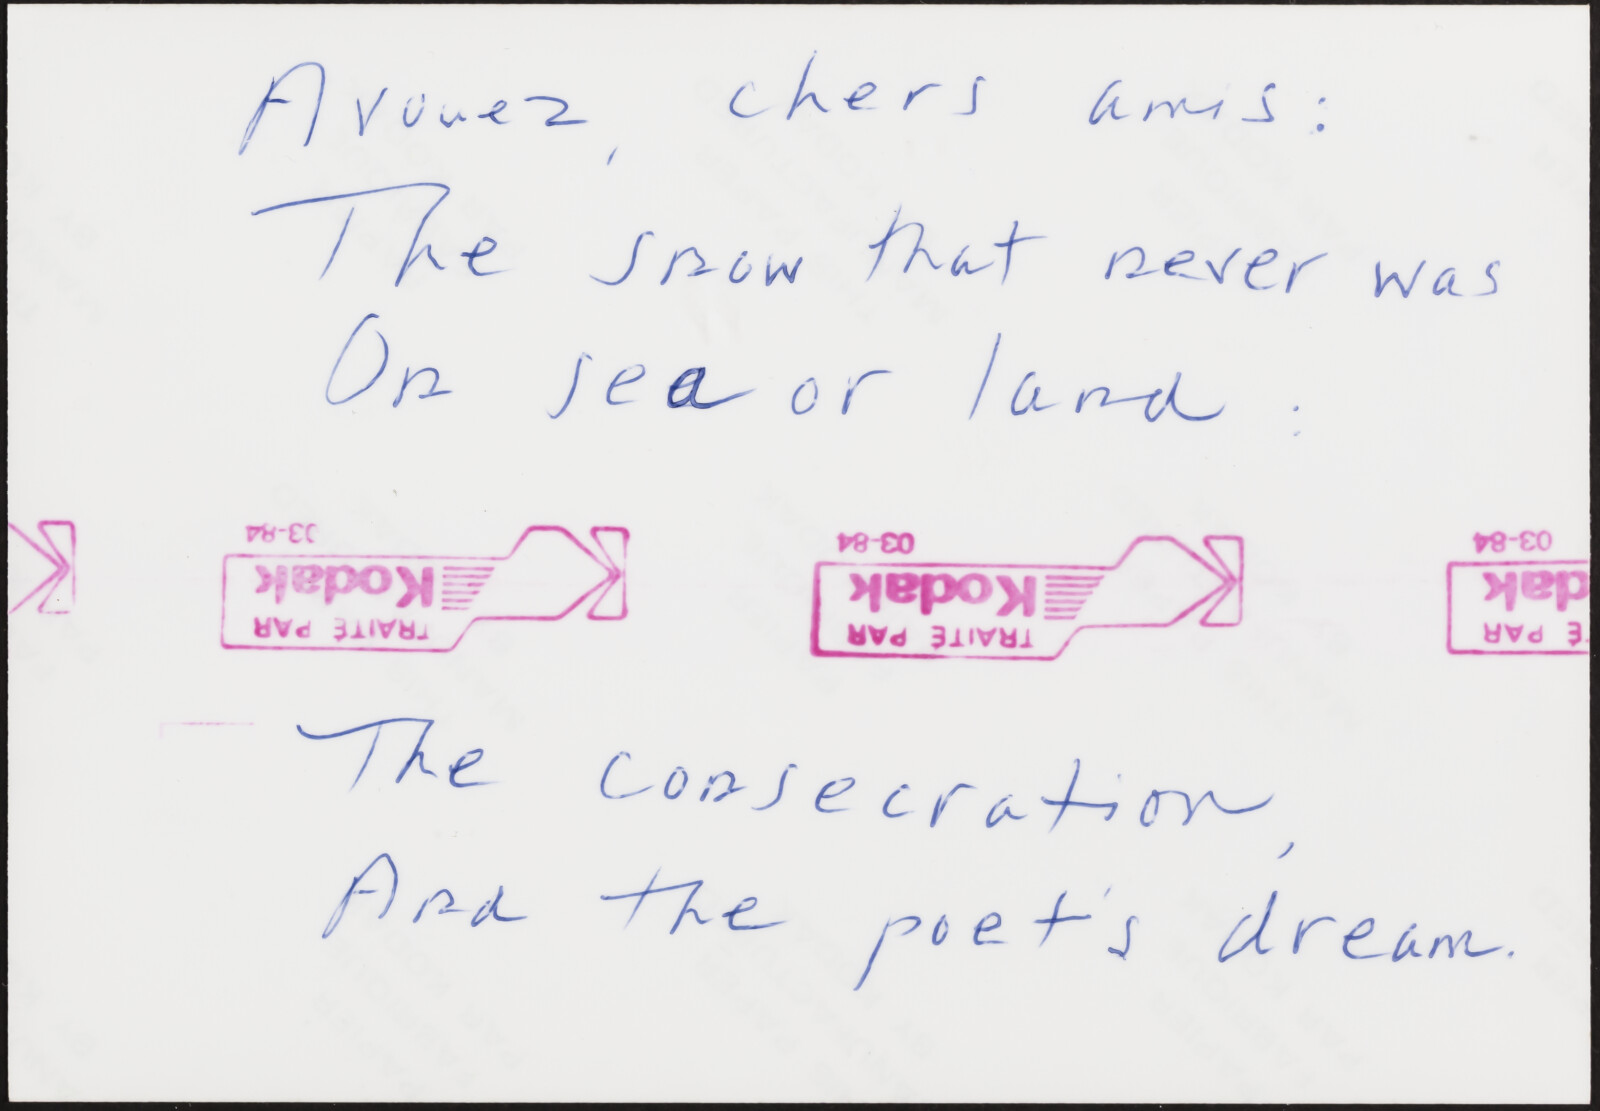 Avouez, chers amis:
The snow that never was
On sea or land:
03-84 03-84 03-84
Kodak Kodak dak
TRAITÉ PAR TRAITÉ PAR É PAR
The consecration,
And the poet's dream.